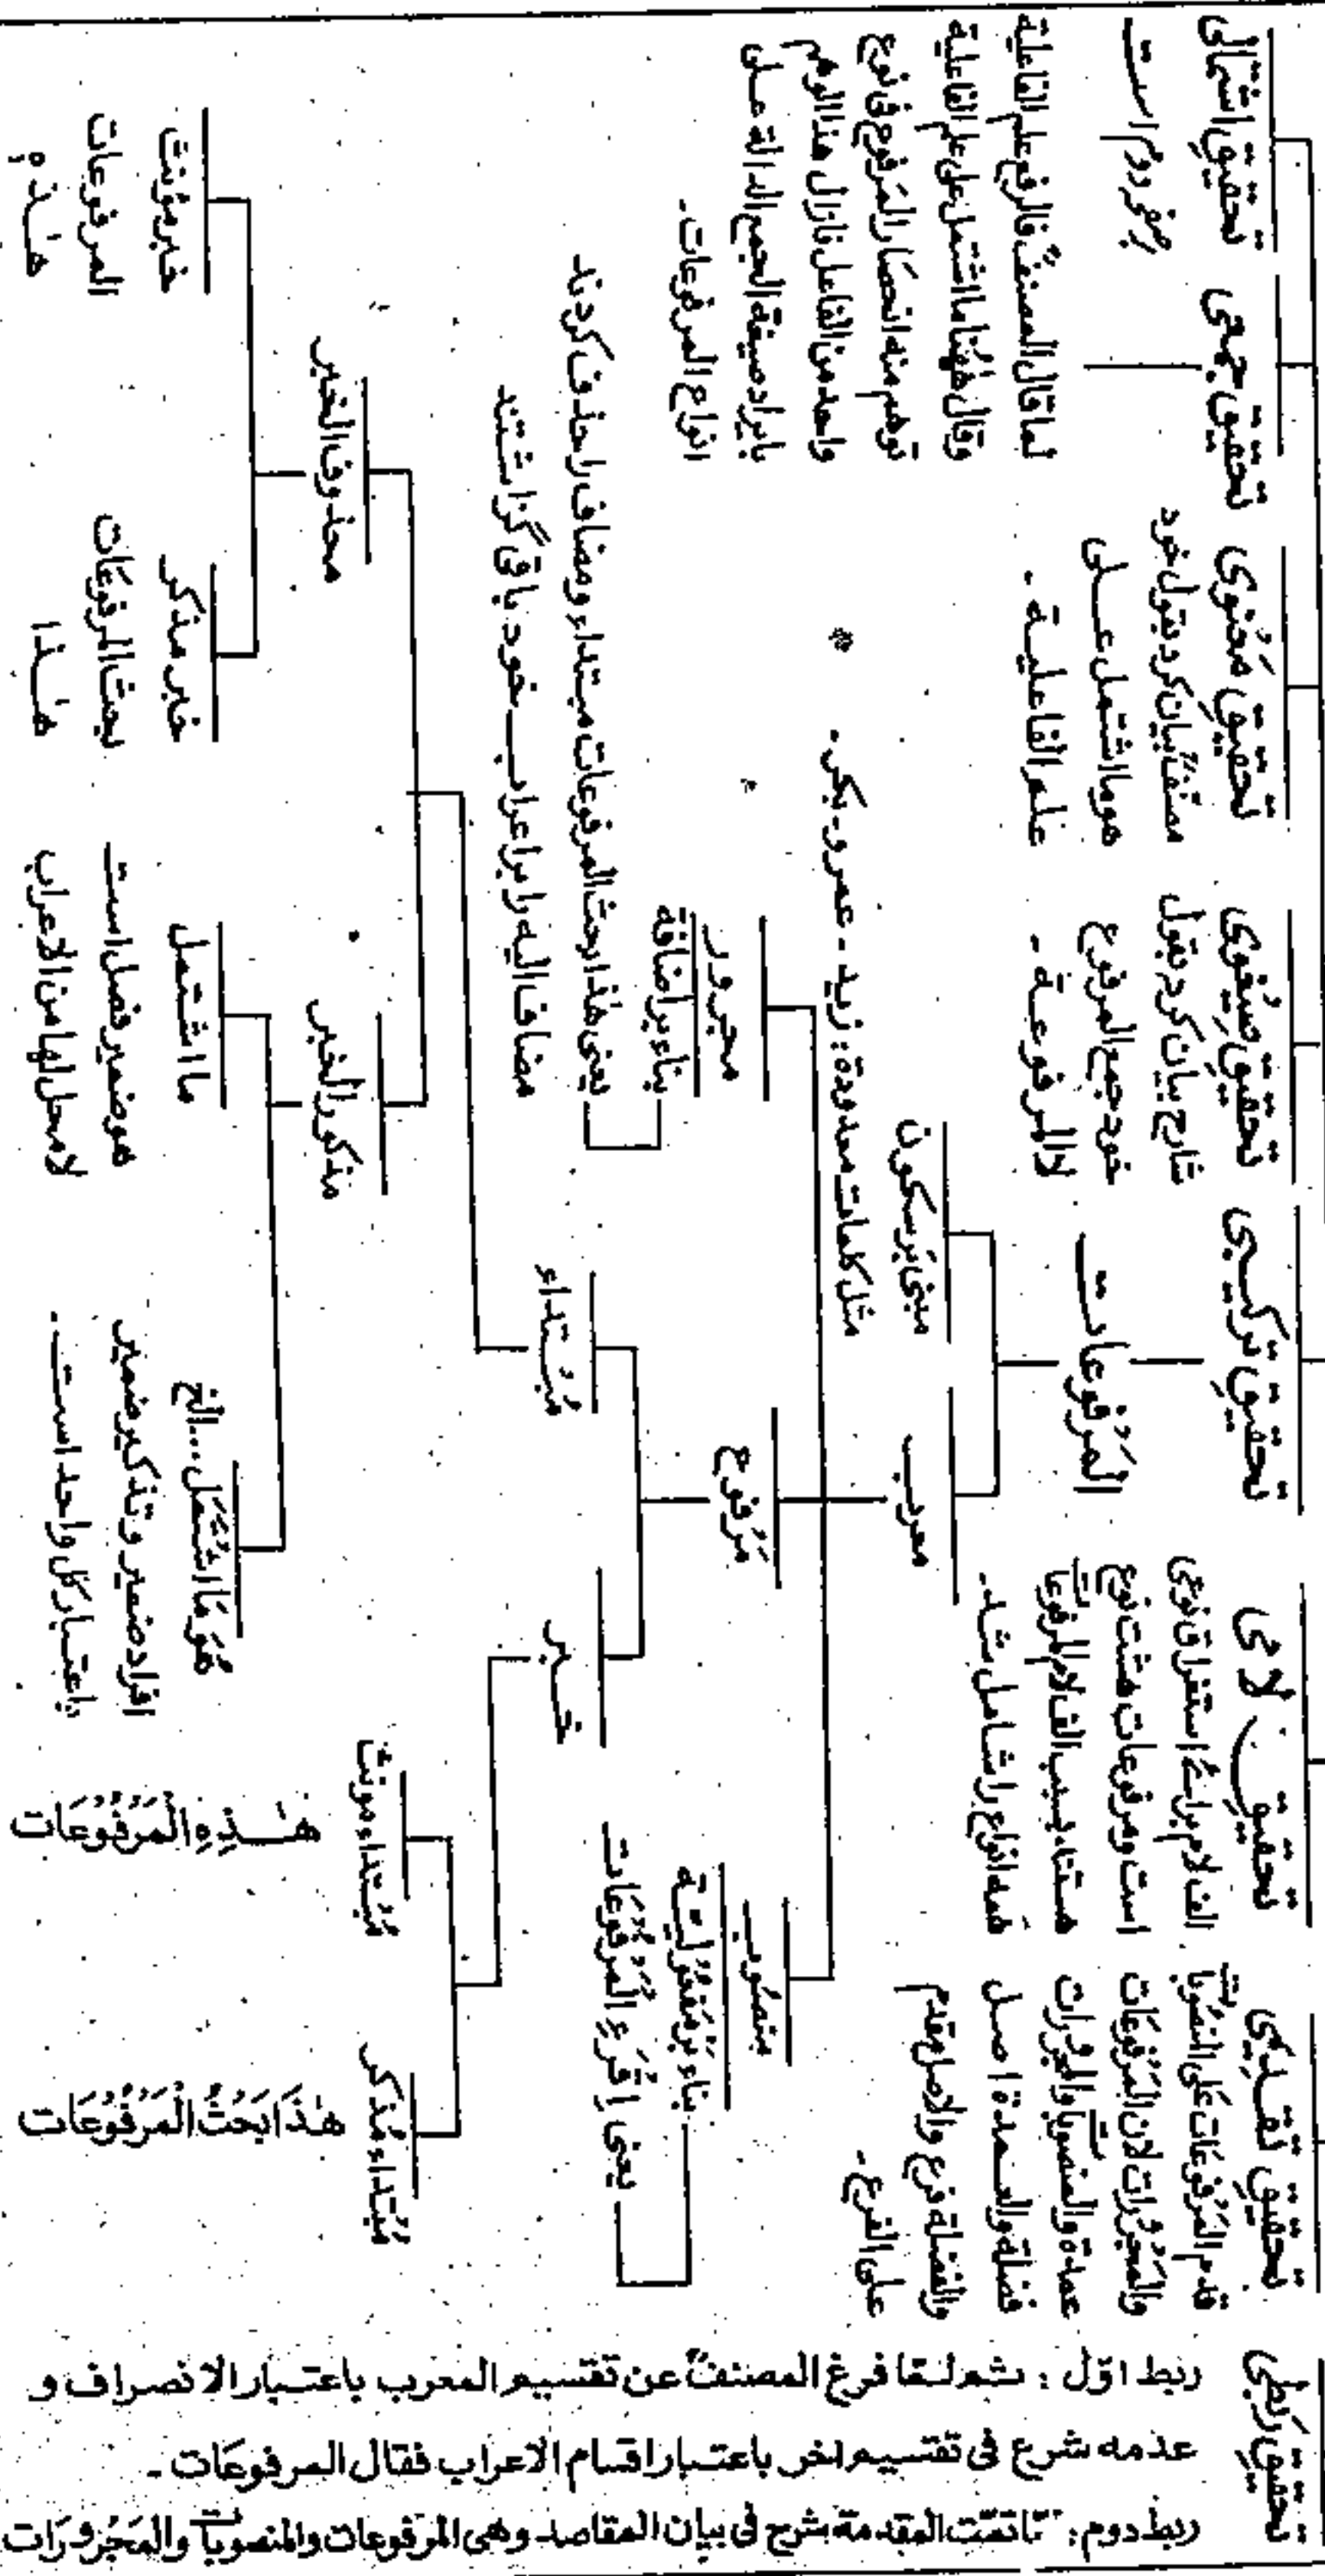 تحقیق ربطی
ربط اوّل : ثم لما فرغ المصنفؒ عن تقسیم المعرب باعتبار الانصراف و
عدمه شرع فی تقسیم اخر باعتبار اقسام الاعراب فقال المرفوعات -
ربط دوم : لما تمّت المقدمة شرع فی بیان المقاصد وهی المرفوعات والمنصوبات والمجرورات
تحقیق تقدیمی
قدم المرفوعات علی المنصوبات
والمجرورات لان المرفوعات
عمدة والمنصوبات والمجرورات
فضلة والعمدة اصل
والفضلة فرع والاصل مقدم
علی الفرع -
تحقیق لامی
الف لام برائے استغراق نوعی
است ومرفوعات هشت نوع
هستند بسبب الف لام المرفوعات
همه انواع را شامل شد -
تحقیق ترکیبی
المَرْفُوعات
معرب
مبنی بر سکون
مثل کلمات معدودة : زید - عمرو - بکر -
منصُوب
بناء بر مَفْعُولِیّة
یعنی اِقْرَءِ الْمَرْفُوْعَات
مَرفوع
مجرور
بناء بر اضافة
یعنی هذا بحث المرفوعات مبتداء و مضاف را حذف کردند
مضاف الیه را بر اعراب خود باقی گزاشتند
خبر
مُبتداء
مُبْتداء مُذکر
هٰذَا بَحْثُ الْمَرْفُوْعَات
مُبْتداء مونث
هٰذِهِ الْمَرْفُوْعَات
مذکور الخبر
محذوف الخبر
هُوَ مَا اشْتَمَلَ ... الخ
افراد ضمیر و تذکیر ضمیر
باعتبار کل واحد است -
ما اشتمل
هو ضمیر فصل است
لا محل لها من الاعراب
خبر مذکر
بحث المرفوعات
هٰذا
خبر مؤنث
المرفوعات
هٰذه
تحقیق صیغوی
شارح بیان کرد بقول
خود جمع المرفوع
لا المرفوعة -
تحقیق معنوی
مصنفؒ بیان کرد بقول خود
هو ما اشتمل علی
علم الفاعلیة -
تحقیق جمعی
لما قال المصنفؒ فالرفع علم الفاعلیة
وقال ههنا ما اشتمل علی علم الفاعلیة
توهم منه انحصار المرفوع فی نوع
واحد من الفاعل فازال هذا الوهم
بایراد صیغة الجمع الدالة علی
انواع المرفوعات -
تحقیق اشتمالی
دوم است